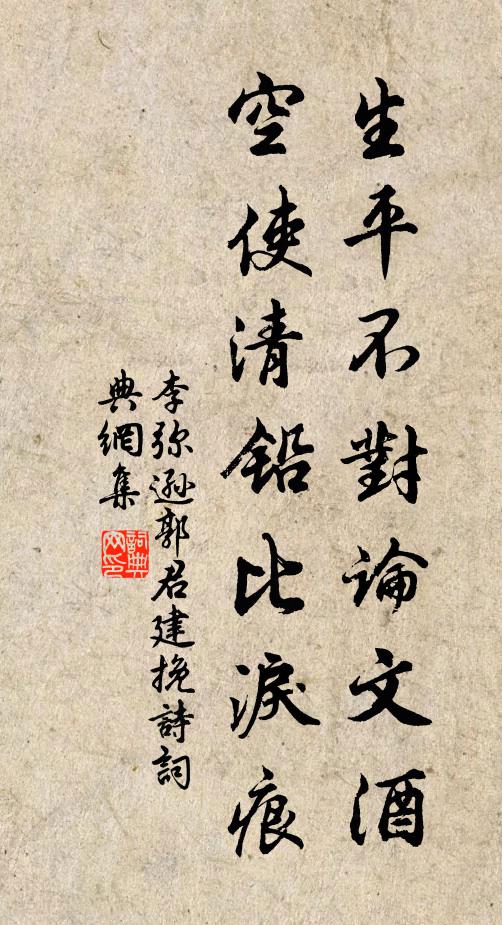 生平不對論文酒
空使清鉛比淚痕
李弥遜郭君建挽詩詞
典網集
詞典網印